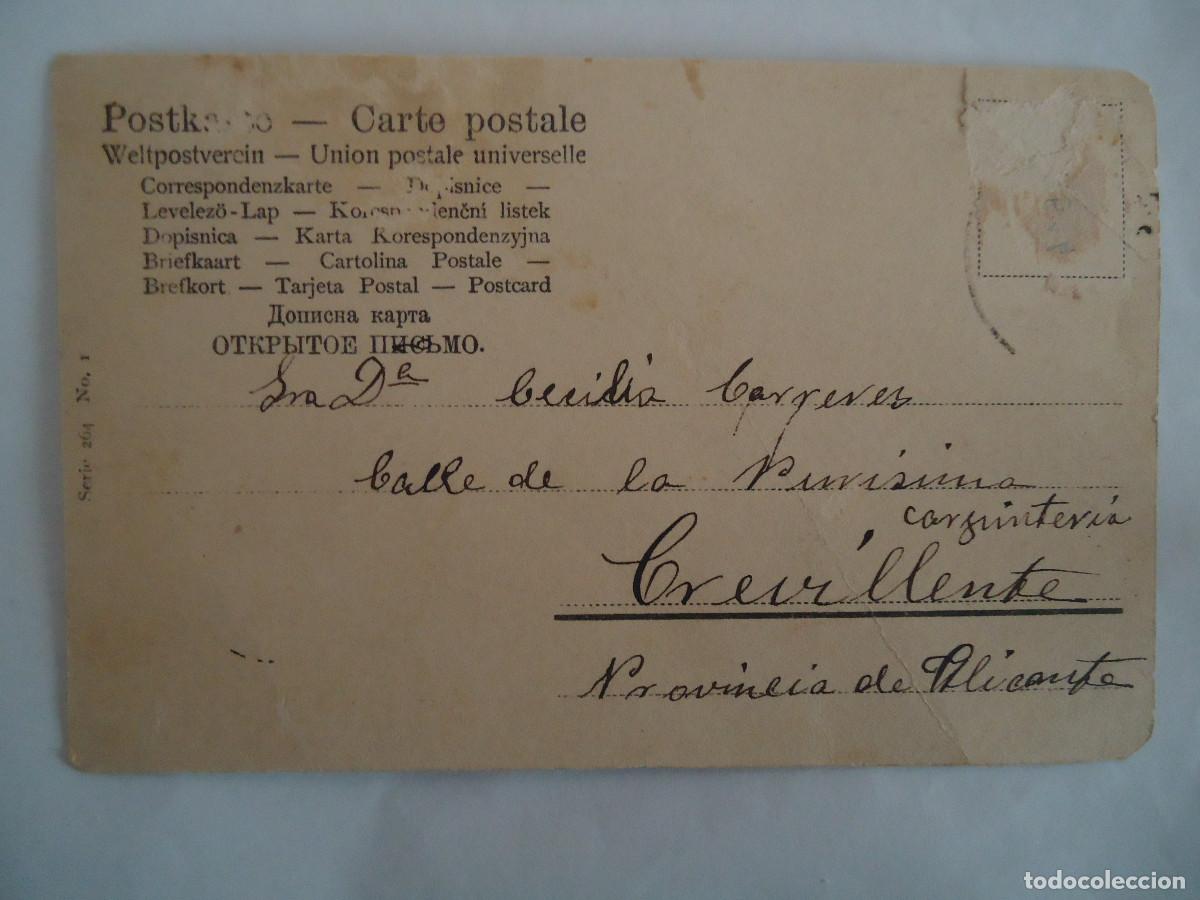 Postkarte — Carte postale
Weltpostverein — Union postale universelle
Correspondenzkarte — Dopisnice —
Levelező-Lap — Korespondenční listek
Dopisnica — Karta Korespondenzyjna
Briefkaart — Cartolina Postale —
Brefkort — Tarjeta Postal — Postcard
Дописна карта
ОТКРЫТОЕ ПИСЬМО.
Serie 264 No. 1
Sra Dª Cecilia Carreres
Calle de la Purisima
carpinteria
Crevillente
Provincia de Alicante
todocoleccion